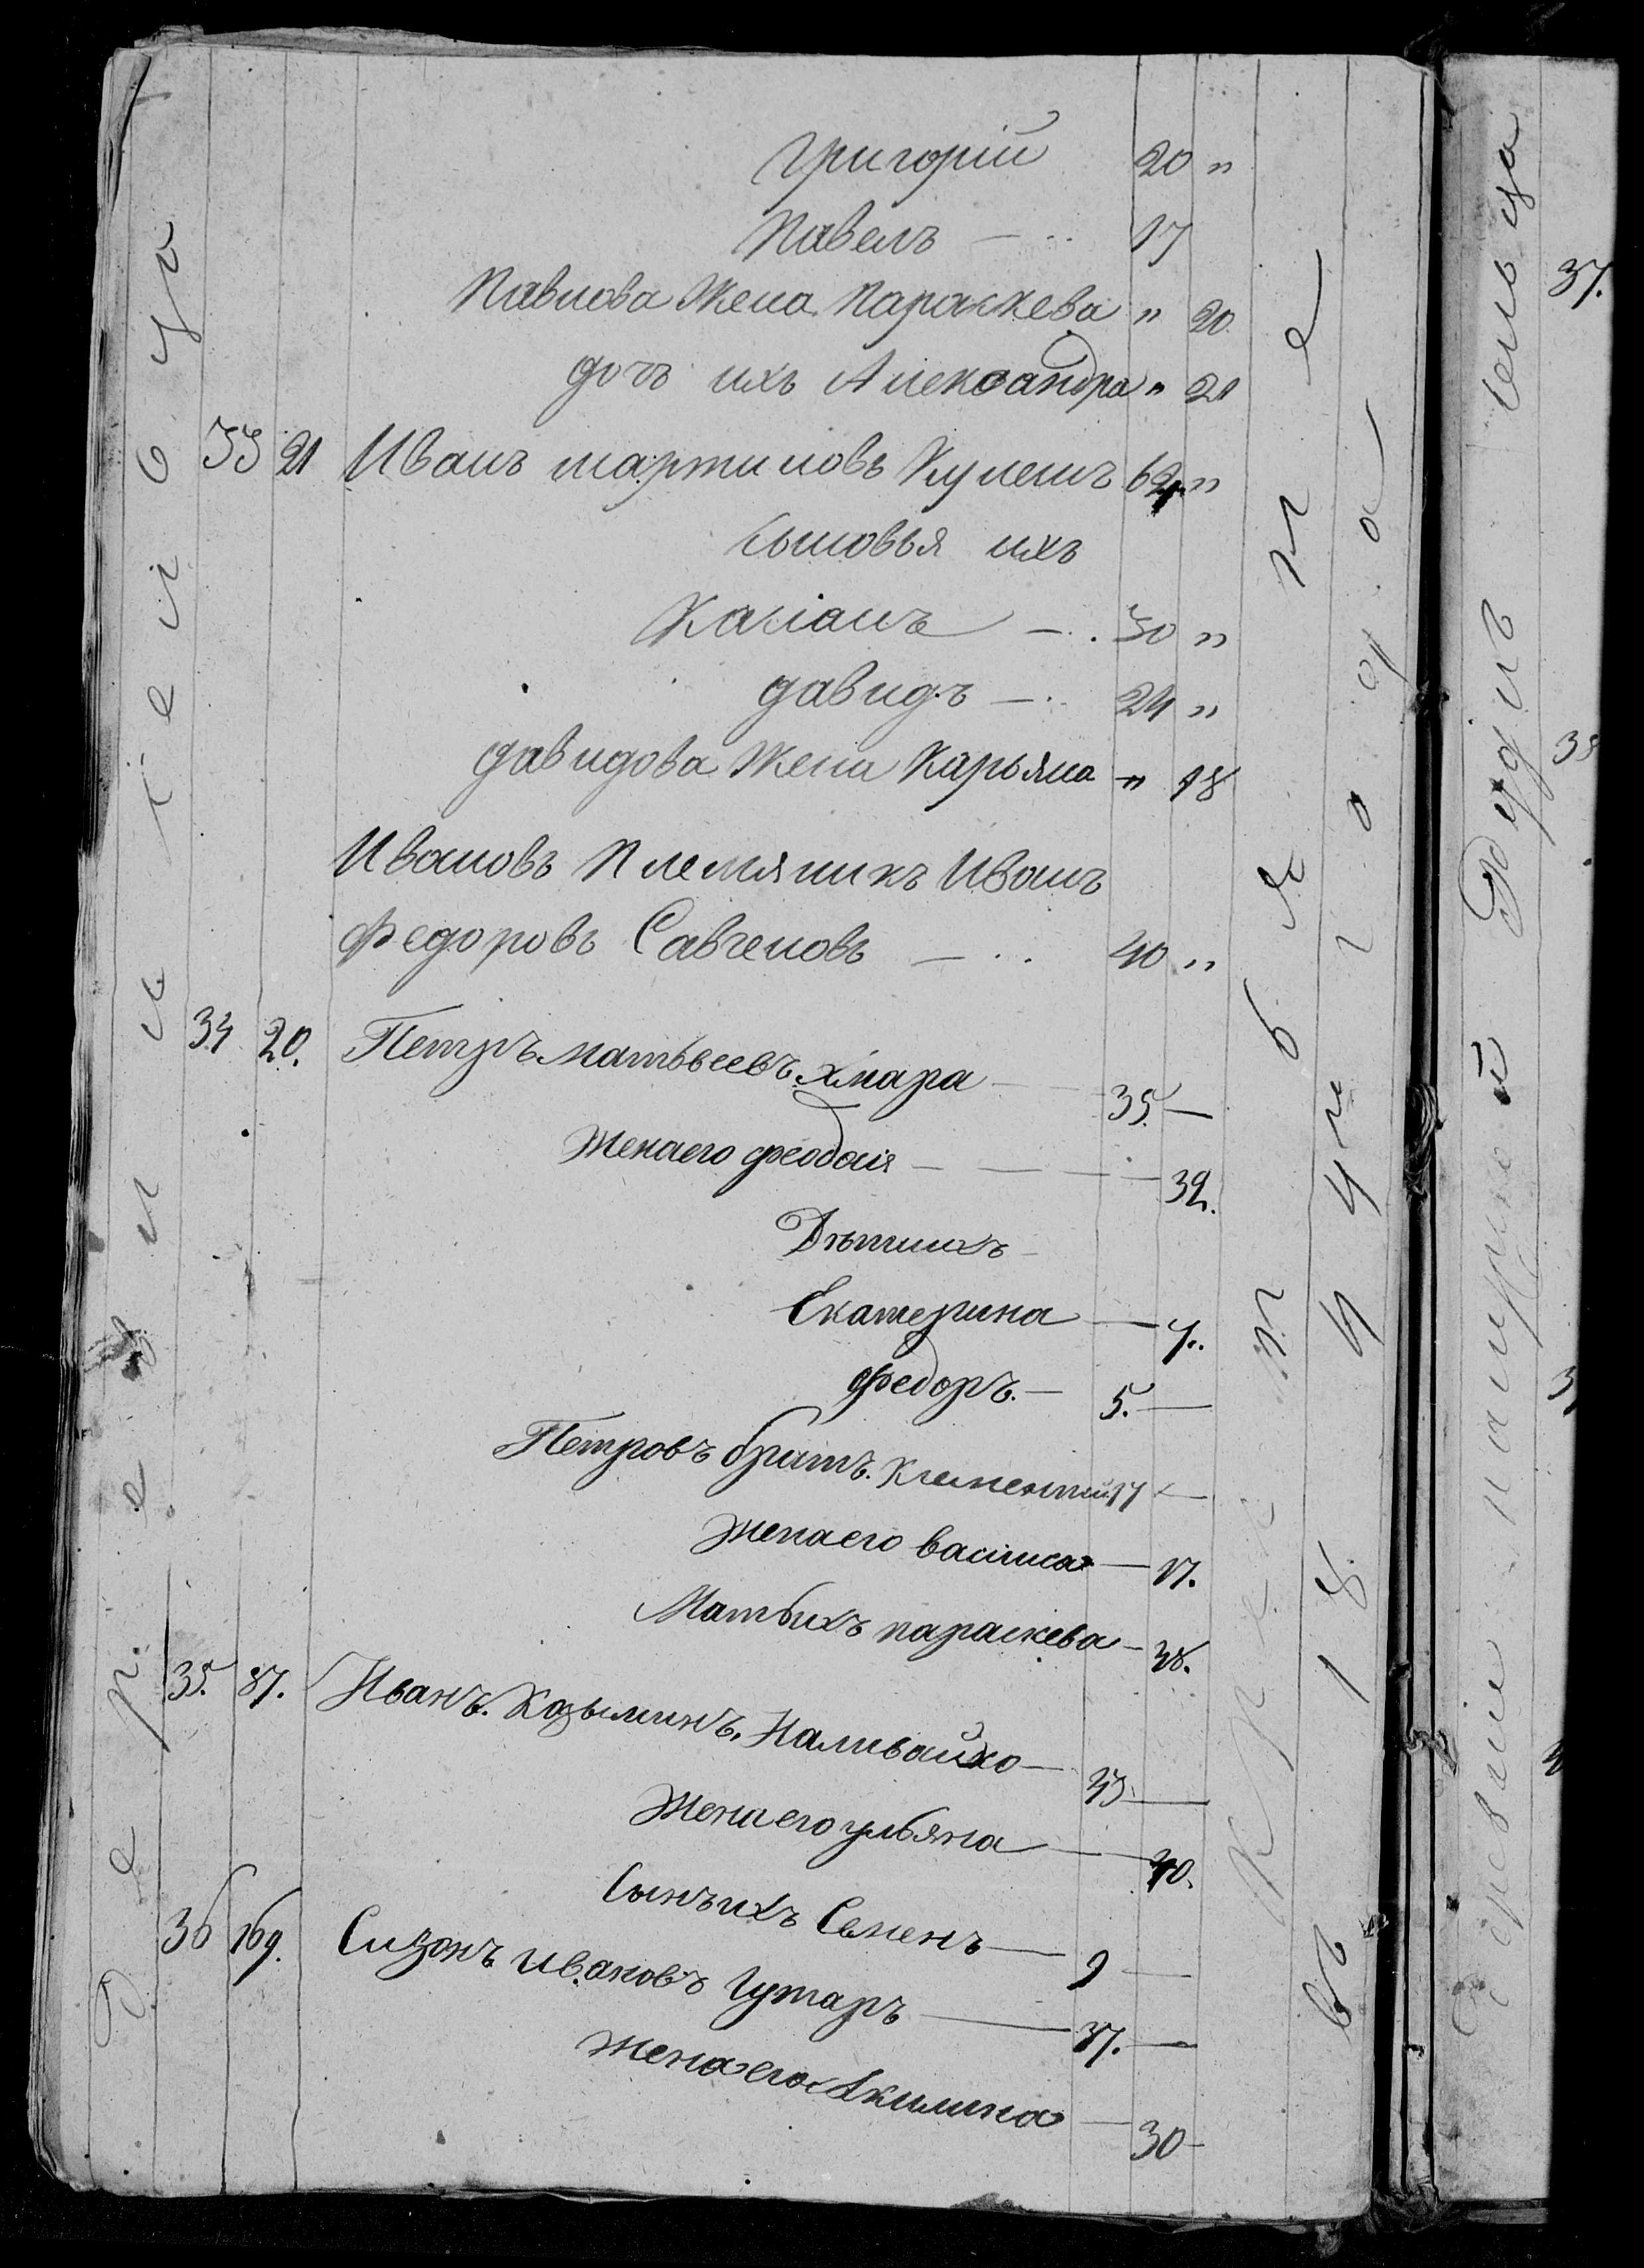 григорій 20 "
Павелъ 17
Павлова Жена Параскева " 20
дочь ихъ Александра " 21
33 21 Иванъ мартиновъ Кулешъ 64 "
Сыновья ихъ
Касіанъ 30 "
давидъ 24 "
давидова Жена Марьяна " 18
Ивановъ Племяникъ Иванъ
Федоровъ Савченовъ 40 "
34 20. Петръ матвѣевъ хмара 35. —
Жена его феодосія — 32.
Дѣти ихъ
Екатерина — 7.
Федоръ. — 5. —
Петровъ братъ. Климентій 17 —
Жена его василиса — 17.
Мать ихъ параскева — 48.
35. 87. Иванъ. Козьминъ. Наливайко — 43 —
Жена его ульяна — 40.
Сынъ ихъ Семенъ — 9 —
36 169. Сизонъ ивановъ Гутаръ — 37. —
Жена его Акилина — 30
крестьяне
въ 1844 года
37.
38